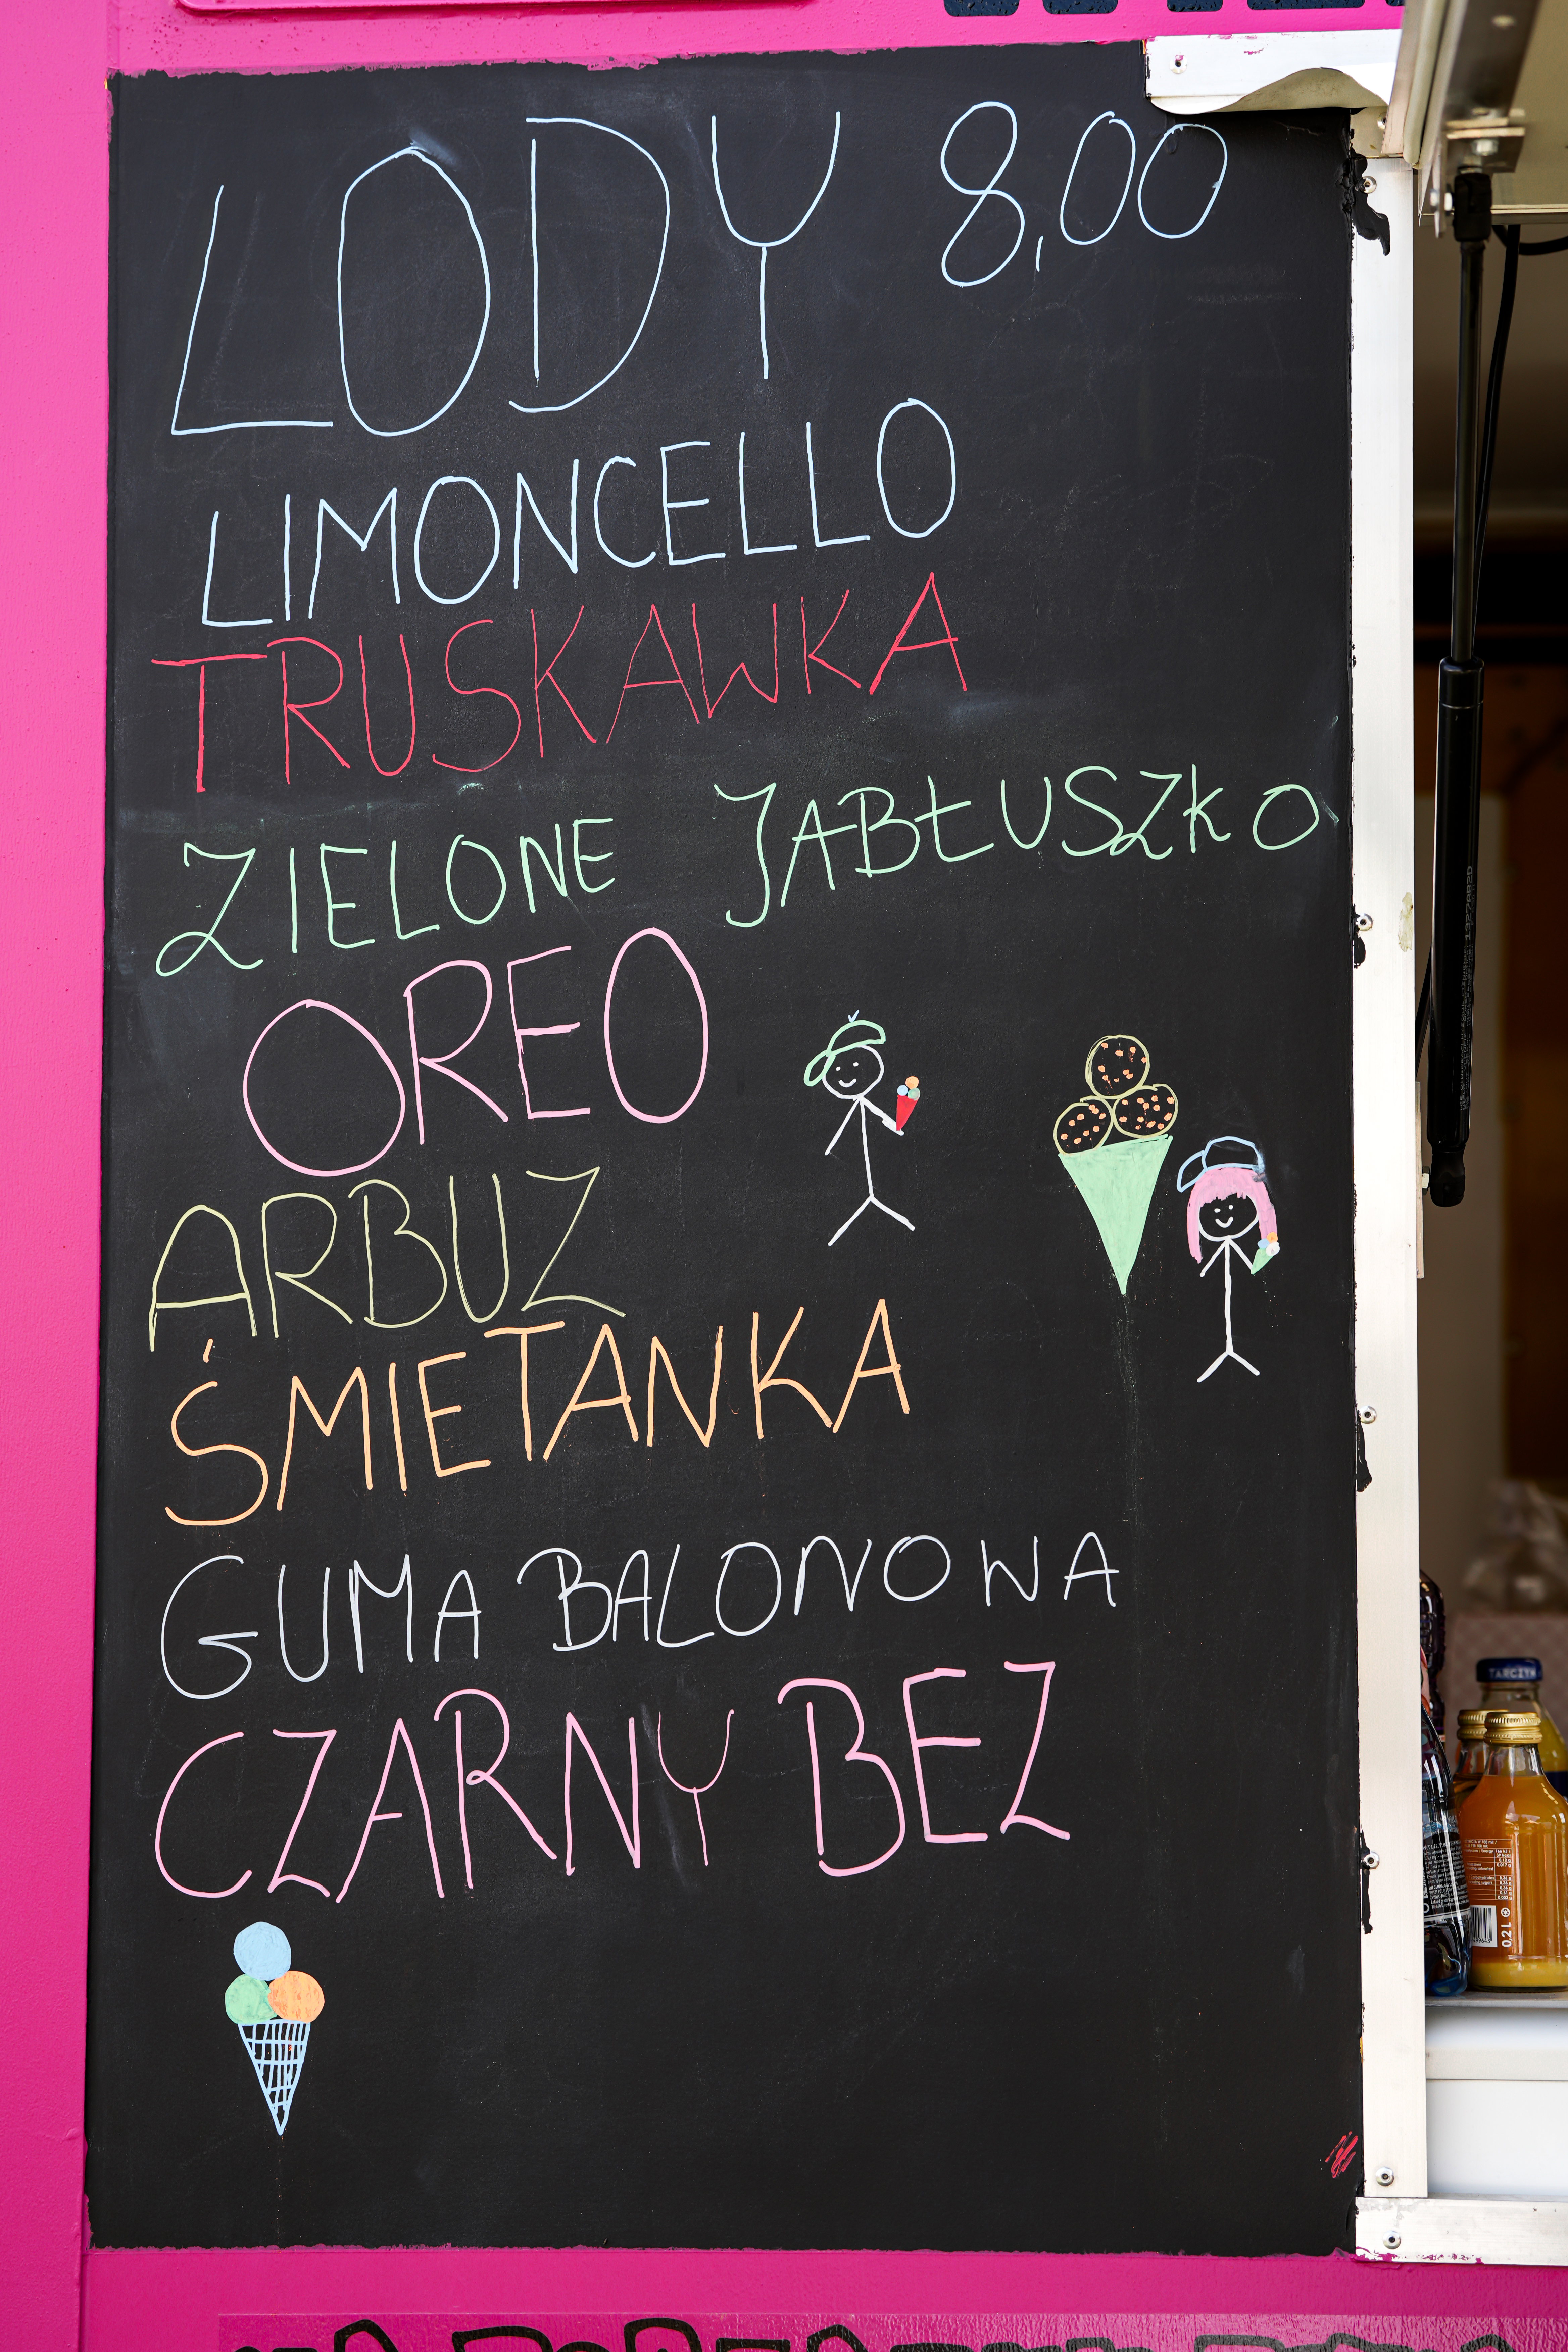 LODY 8,00
LIMONCELLO
TRUSKAWKA
ZIELONE JABŁUSZKO
OREO
ARBUZ
ŚMIETANKA
GUMA BALONOWA
CZARNY BEZ
TARCZYN
0.2 L